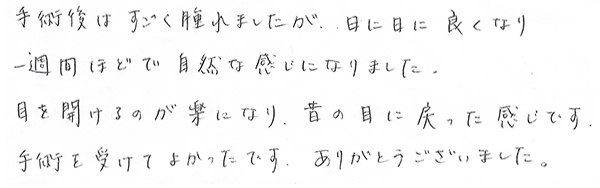 手術後はすごく腫れましたが、日に日に良くなり
一週間ほどで自然な感じになりました。
目を開けるのが楽になり、昔の目に戻った感じです。
手術を受けてよかったです。ありがとうございました。